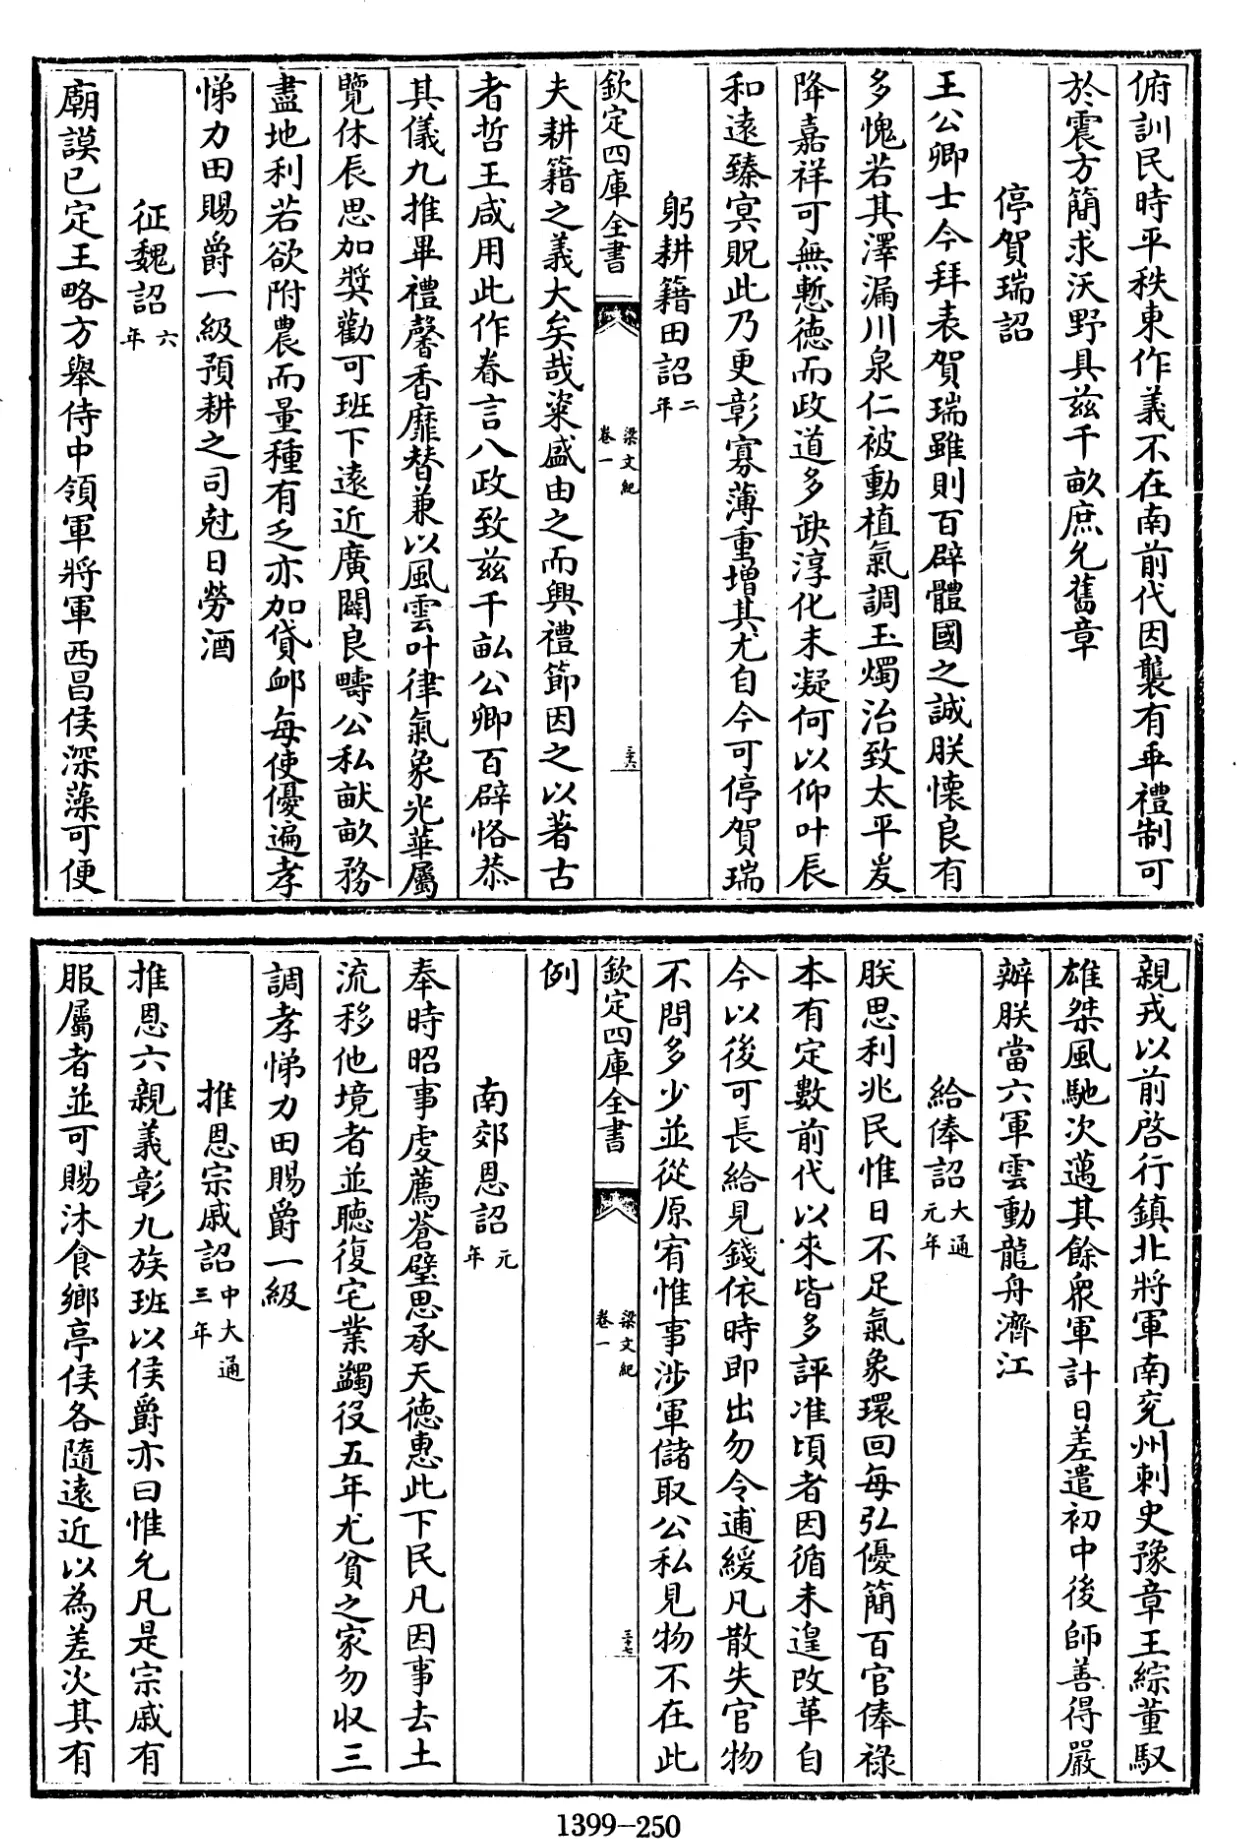 俯訓民時平秩東作義不在南前代因襲有乖禮制可
於震方簡求沃野具兹千畝庶允舊章
停賀瑞詔
王公卿士今拜表賀瑞雖則百辟體國之誠朕懐良有
多愧若其澤漏川泉仁被動植氣調玉燭治致太平爰
降嘉祥可無慙德而政道多缺淳化未凝何以仰叶辰
和遠臻㝠貺此乃更彰寡薄重增其尤自今可停賀瑞
躬耕籍田詔二年
欽定四庫全書
梁文紀
卷一
三十六
夫耕籍之義大矣哉粢盛由之而興禮節因之以著古
者哲王咸用此作眷言八政致兹千畝公卿百辟恪恭
其儀九推畢禮馨香靡替兼以風雲叶律氣象光華屬
覽休辰思加奬勸可班下遠近廣闢良疇公私畎畝務
盡地利若欲附農而量種有乏亦加貸䘏每使優遍孝
悌力田賜爵一級預耕之司尅日勞酒
征魏詔六年
廟謨已定王略方舉侍中領軍將軍西昌侯深藻可便
親戎以前啓行鎮北將軍南兖州刺史豫章王綜董馭
雄桀風馳次邁其餘衆軍計日差遣初中後師善得嚴
辦朕當六軍雲動龍舟濟江
給俸詔大通元年
朕思利兆民惟日不足氣象環回每弘優簡百官俸祿
本有定數前代以來皆多評准頃者因循未遑改革自
今以後可長給見錢依時即出勿令逋緩凡散失官物
不問多少並從原宥惟事涉軍儲取公私見物不在此
欽定四庫全書
梁文紀
卷一
三十七
例
南郊恩詔元年
奉時昭事䖍薦蒼璧思承天德惠此下民凡因事去土
流移他境者並聽復宅業蠲役五年尤貧之家勿收三
調孝悌力田賜爵一級
推恩宗戚詔中大通三年
推恩六親義彰九族班以侯爵亦曰惟允凡是宗戚有
服屬者並可賜沐食鄉亭侯各隨遠近以為差次其有
1399-250